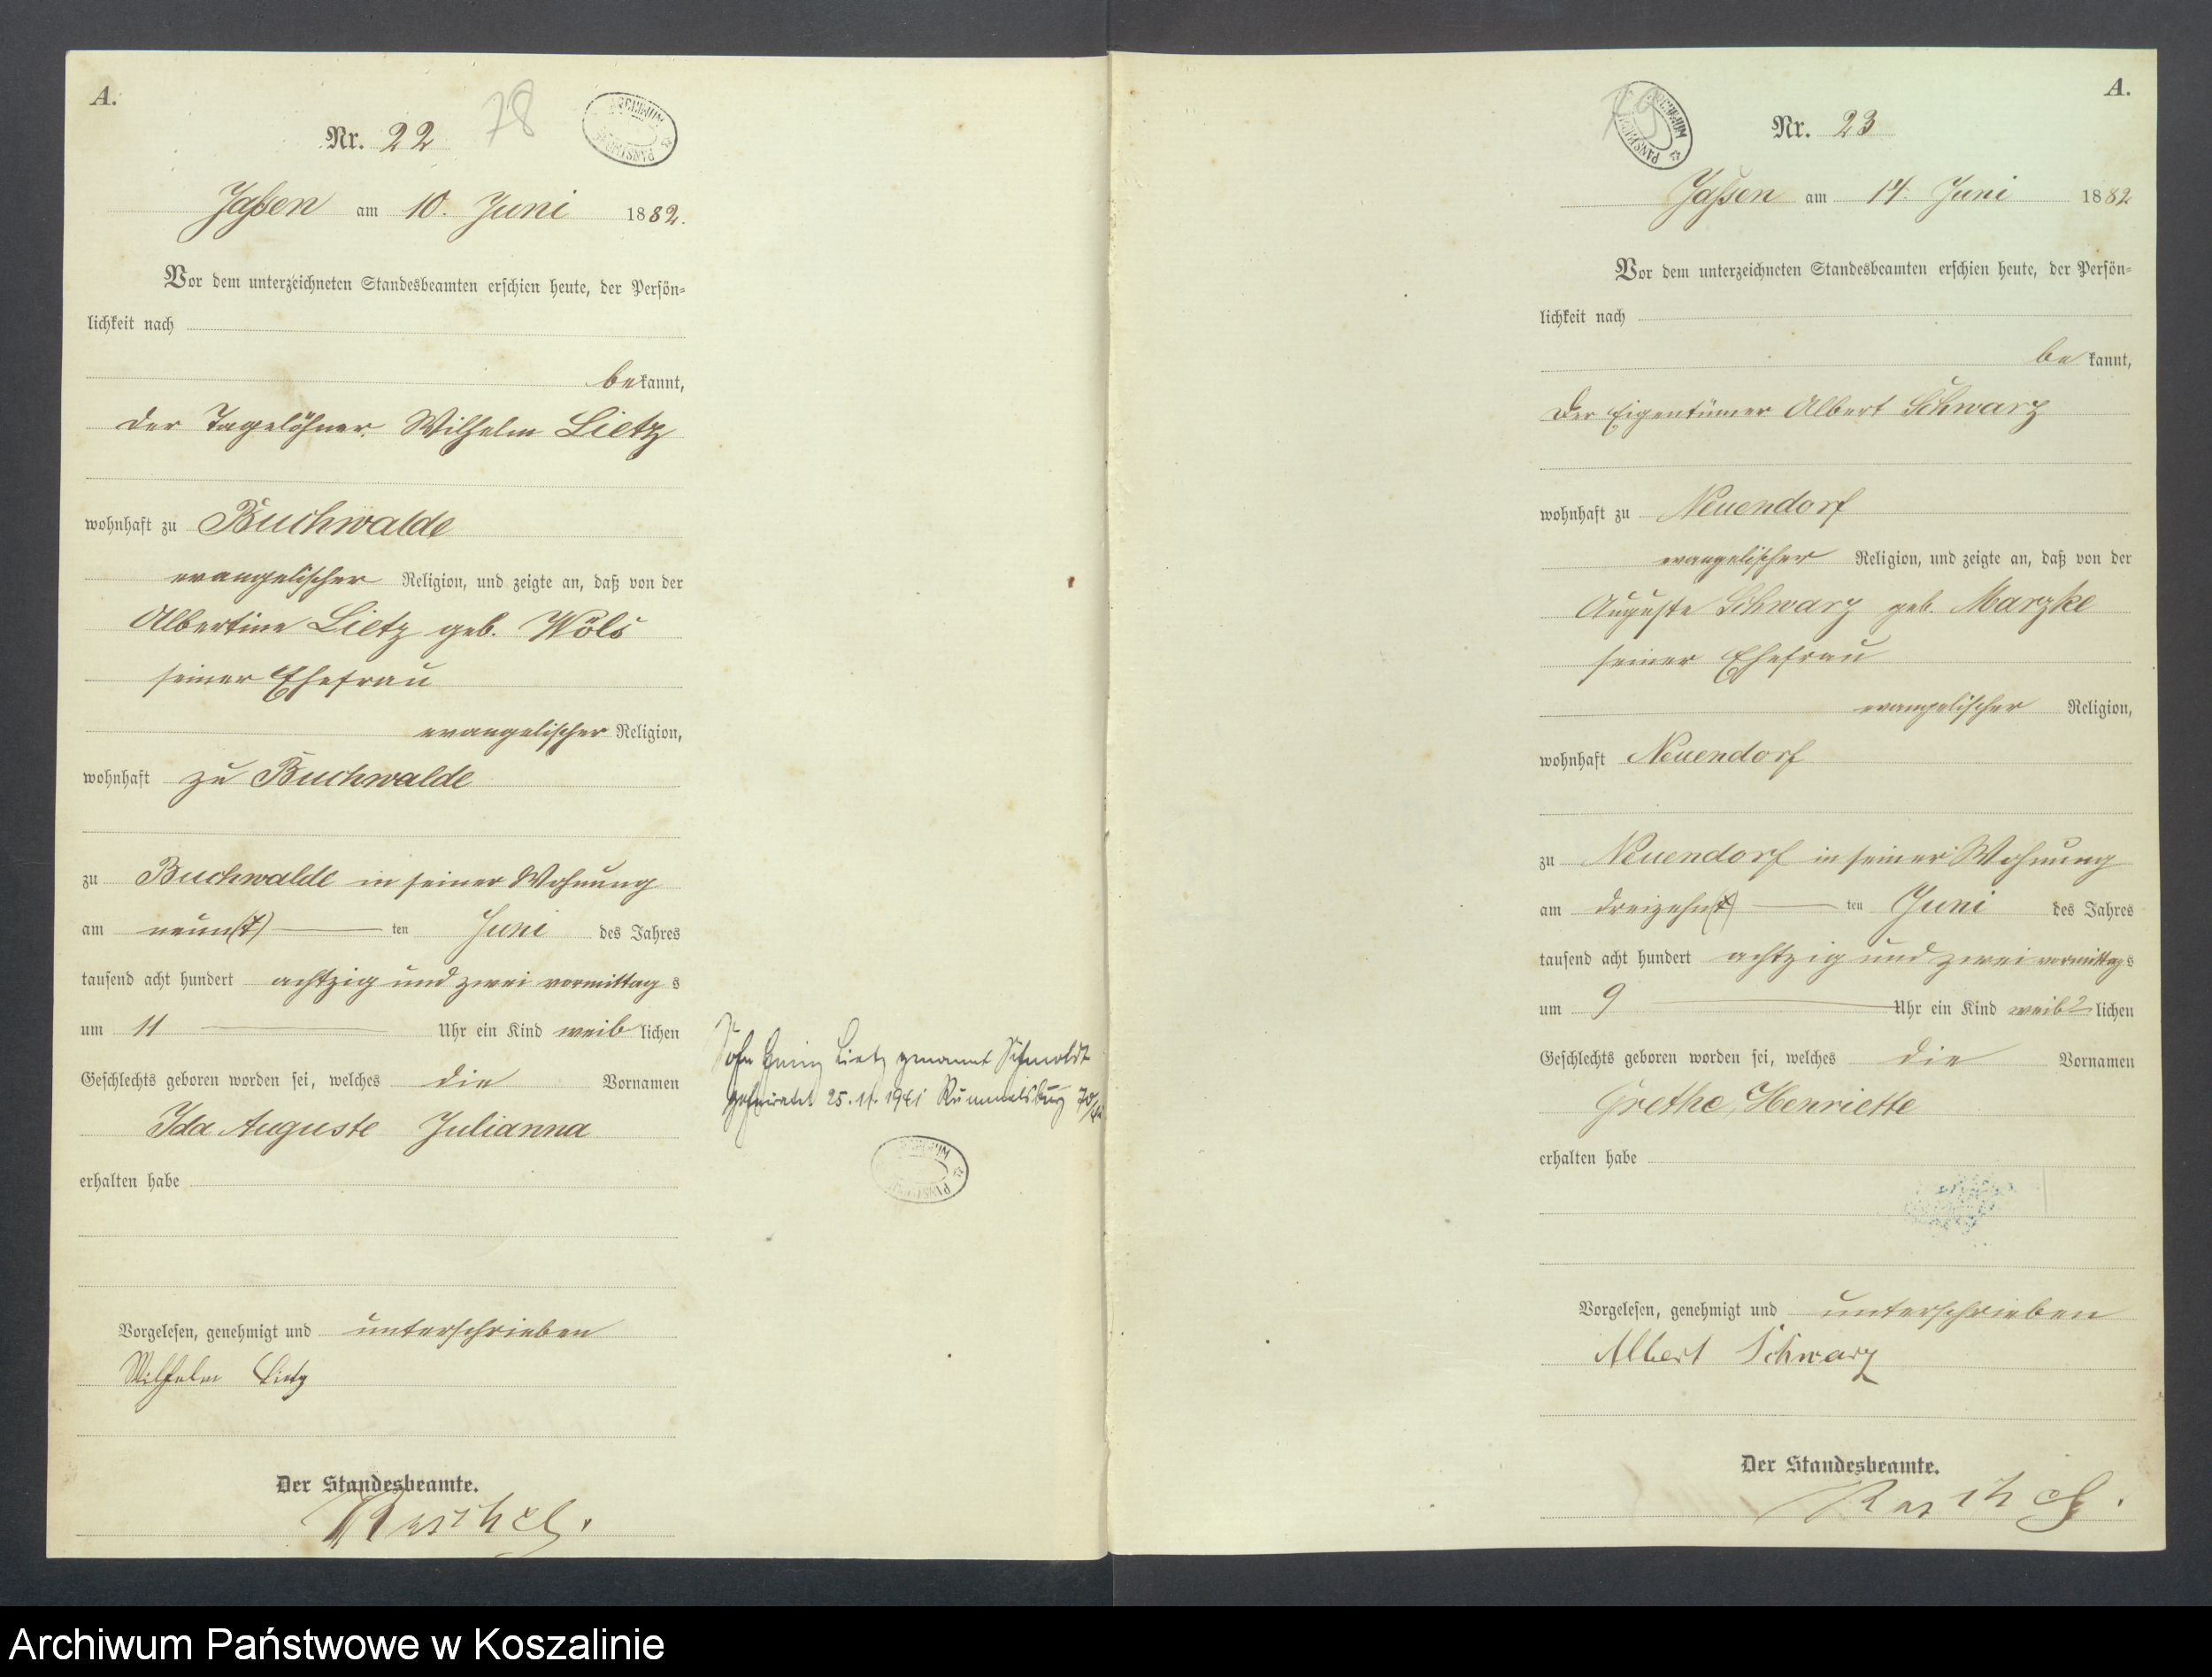 A.
Nr. 22
78
Jaßen am 10. Juni 1882.
Vor dem unterzeichneten Standesbeamten erschien heute, der Persön-
lichkeit nach
bekannt,
der Tagelöhner Wilhelm Lietz
wohnhaft zu Buchwalde
evangelischer Religion, und zeigte an, daß von der
Albertine Lietz geb. Wöls
seiner Ehefrau
evangelischer Religion,
wohnhaft zu Buchwalde
zu Buchwalde in seiner Wohnung
am neun(t) ten Juni des Jahres
tausend acht hundert achtzig und zwei vormittags
um 11 Uhr ein Kind weiblichen
Geschlechts geboren worden sei, welches die Vornamen
Ida Auguste Julianna
erhalten habe
Vorgelesen, genehmigt und unterschrieben
Wilhelm Lietz
Der Standesbeamte.
Sohn Lietz genannt
geheiratet 25.11.1941 Rummelsburg
ARCHIWUM PAŃSTWOWE
A.
79
Nr. 23
Jaßen am 14. Juni 1882
Vor dem unterzeichneten Standesbeamten erschien heute, der Persön-
lichkeit nach
bekannt,
Der Eigentümer Albert Schwarz
wohnhaft zu Neuendorf
evangelischer Religion, und zeigte an, daß von der
Auguste Schwarz geb. Marzke
seiner Ehefrau
evangelischer Religion,
wohnhaft Neuendorf
zu Neuendorf in seiner Wohnung
am dreizehn(t) ten Juni des Jahres
tausend acht hundert achtzig und zwei vormittags
um 9 Uhr ein Kind weiblichen
Geschlechts geboren worden sei, welches die Vornamen
Grethe, Henriette
erhalten habe
Vorgelesen, genehmigt und unterschrieben
Albert Schwarz
Der Standesbeamte.
Archiwum Państwowe w Koszalinie